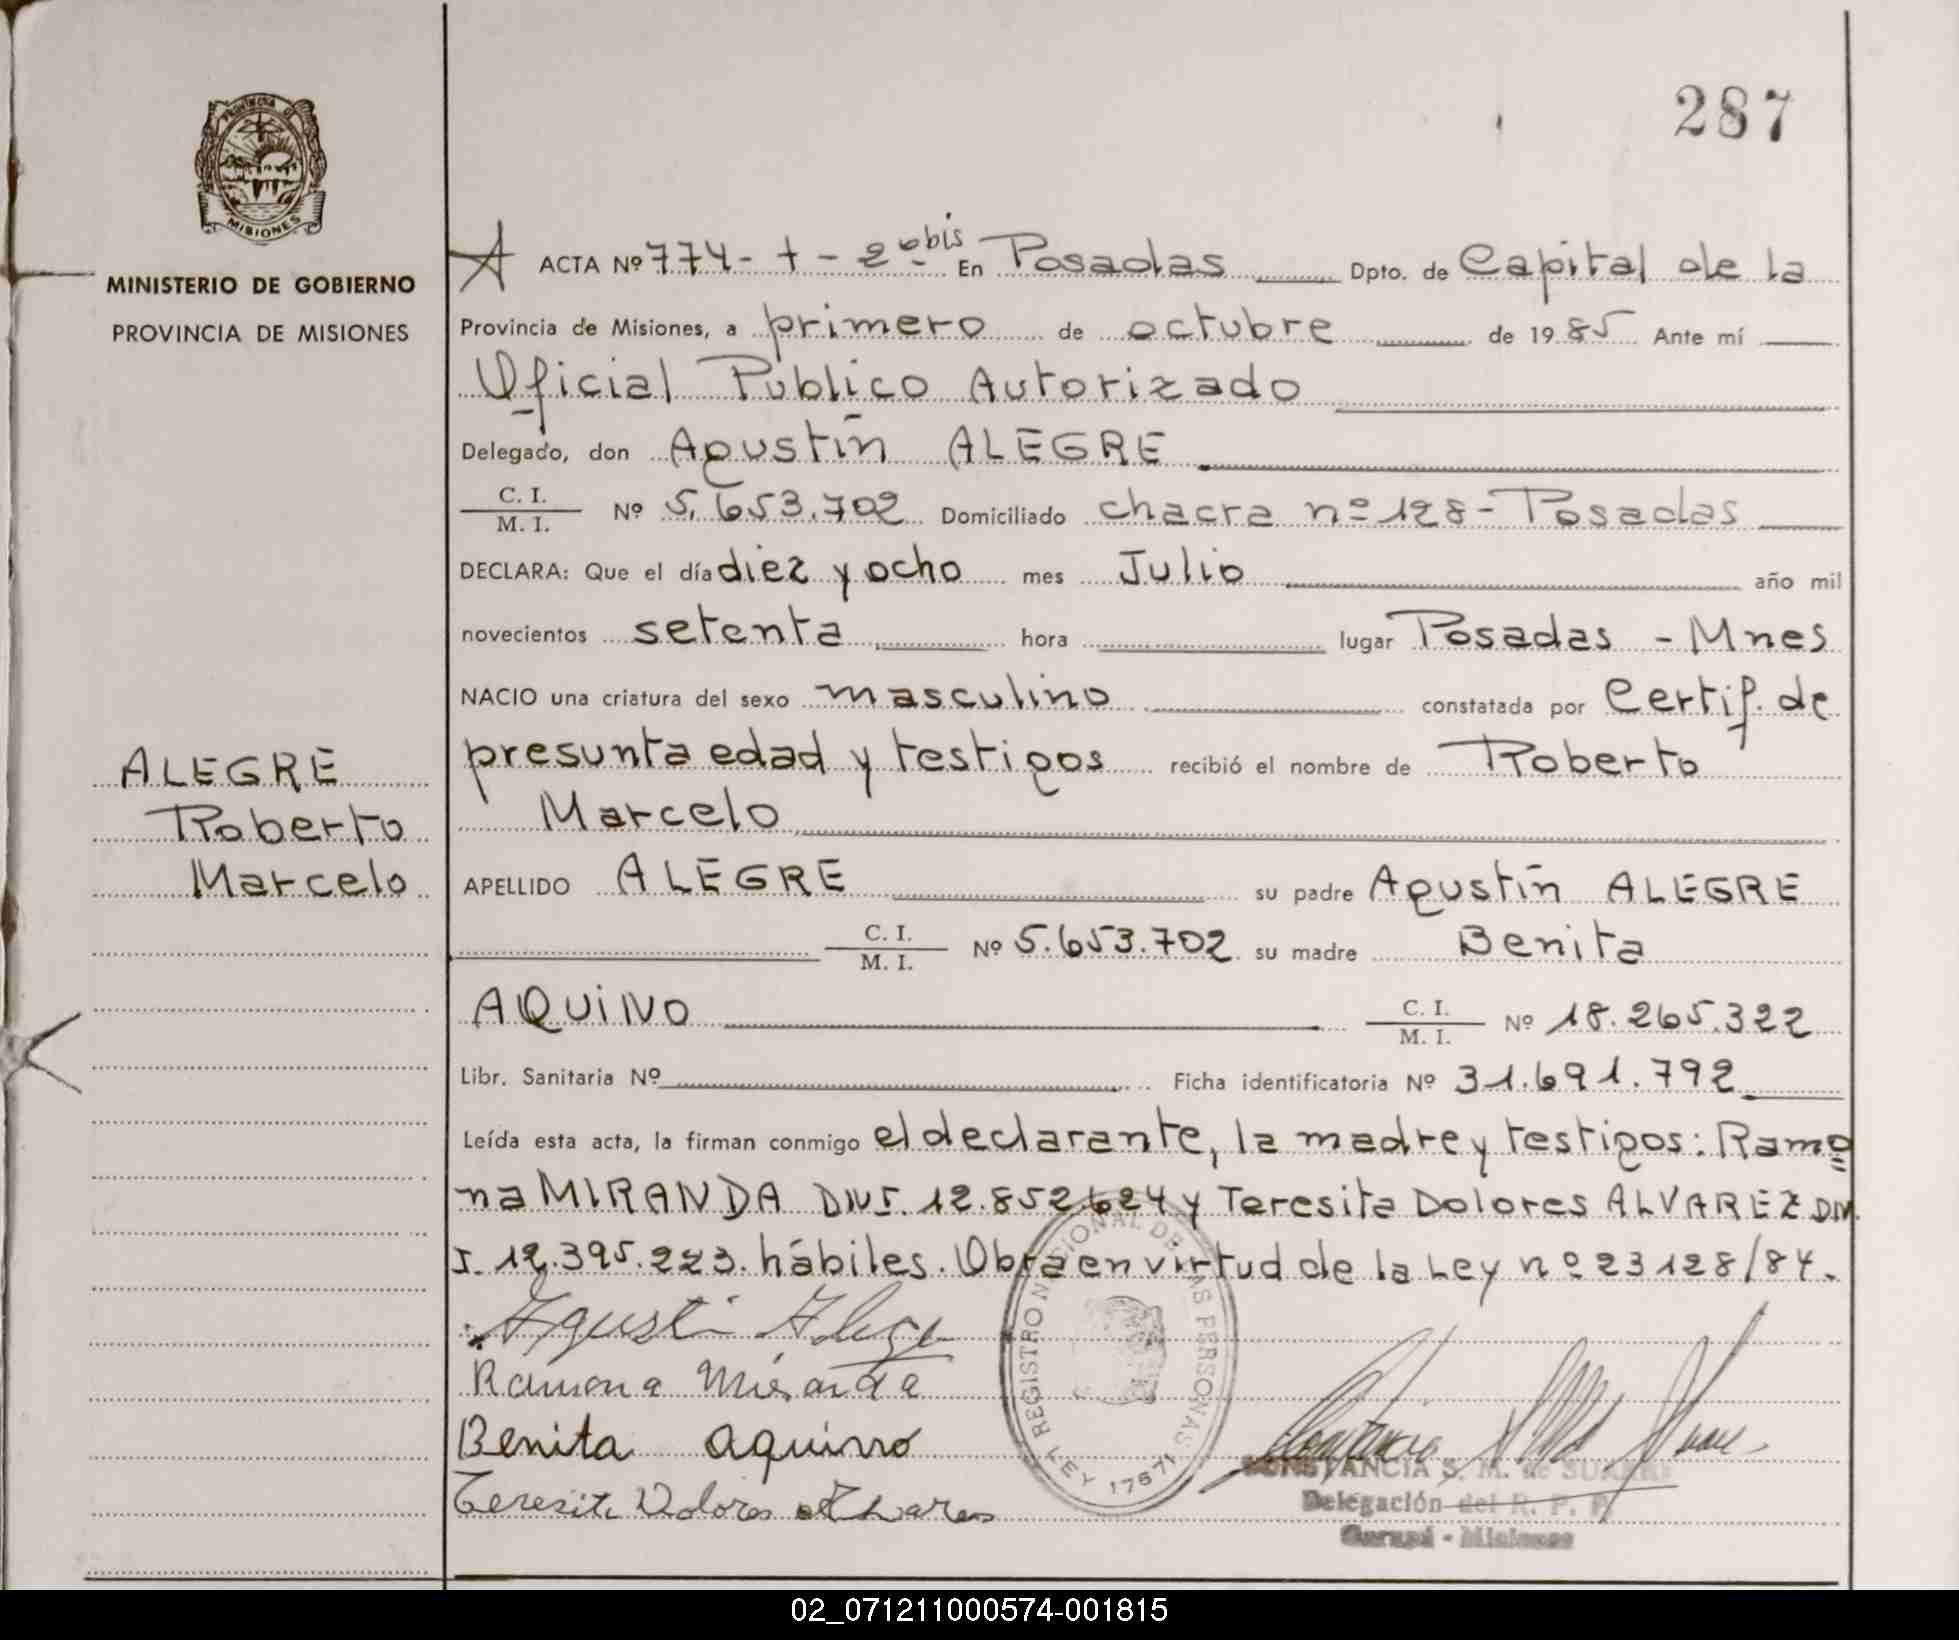 287
PROVINCIA D
MISIONES
MINISTERIO DE GOBIERNO
PROVINCIA DE MISIONES
ALEGRE
Roberto
Marcelo
A ACTA Nº 774-t-2º bis En Posadas Dpto. de Capital de la
Provincia de Misiones, a primero de octubre de 1985 Ante mí
Oficial Público Autorizado
Delegado, don Agustín ALEGRE
C. I.
M. I. Nº 5.653.702 Domiciliado chacra nº 128 - Posadas
DECLARA: Que el día diez y ocho mes Julio año mil
novecientos setenta hora lugar Posadas - Mnes
NACIO una criatura del sexo masculino constatada por Certif. de
presunta edad y testigos recibió el nombre de Roberto
Marcelo
APELLIDO ALEGRE su padre Agustín ALEGRE
C. I.
M. I. Nº 5.653.702 su madre Benita
AQUINO C. I.
M. I. Nº 18.265.322
Libr. Sanitaria Nº Ficha identificatoria Nº 31.691.792
Leída esta acta, la firman conmigo el declarante, la madre y testigos: Ramo
na MIRANDA DNI. 12.852.624 y Teresita Dolores ALVAREZ DN
I. 12.395.223. hábiles. Obra en virtud de la Ley nº 23128/84.
Agustin Alegre
Ramona Miranda
Benita Aquino
Teresita Dolores Alvarez
REGISTRO NACIONAL DE LAS PERSONAS
LEY 17671
CONSTANCIA S. M. de SUAREZ
Delegación del R. P. P.
Garupá - Misiones
02_071211000574-001815